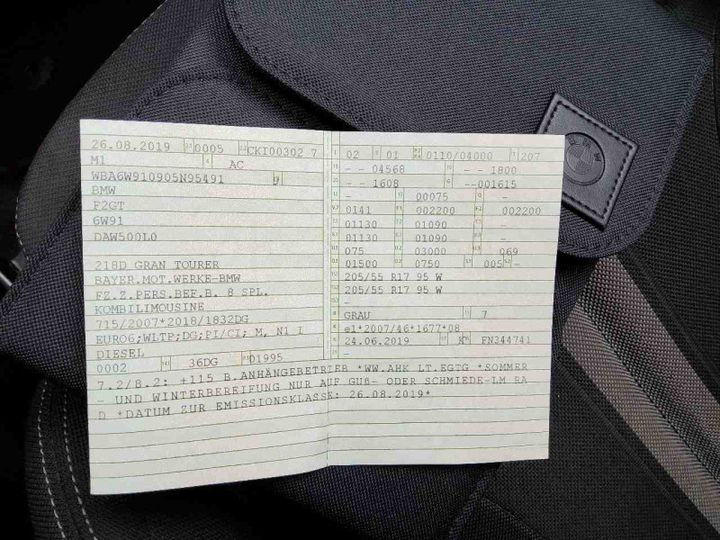 26.08.2019 0005 CKI00302 7
M1 AC
WBA6W910905N95491 9
BMW
F2GT
6W91
DAW500L0
218D GRAN TOURER
BAYER.MOT.WERKE-BMW
FZ.Z.PERS.BEF.B. 8 SPL.
KOMBILIMOUSINE
715/2007*2018/1832DG
EURO6;WLTP;DG;PI/CI; M, N1 I
DIESEL
0002 36DG 01995
02 01 0110/04000 207
- - 04568 - - 1800
- - 1608 --001615
- 00075 -
0141 002200 002200
01130 01090 -
01130 01090 -
075 03000 069
01500 0750 005 -
205/55 R17 95 W
205/55 R17 95 W
-
GRAU 7
e1*2007/46*1677*08
24.06.2019 K FN344741
-
7.2/8.2: +115 B.ANHÄNGEBETRIEB *WW.AHK LT.EGTG *SOMMER
- UND WINTERBEREIFUNG NUR AUF GUß- ODER SCHMIEDE-LM RA
D *DATUM ZUR EMISSIONSKLASSE: 26.08.2019*
BMW